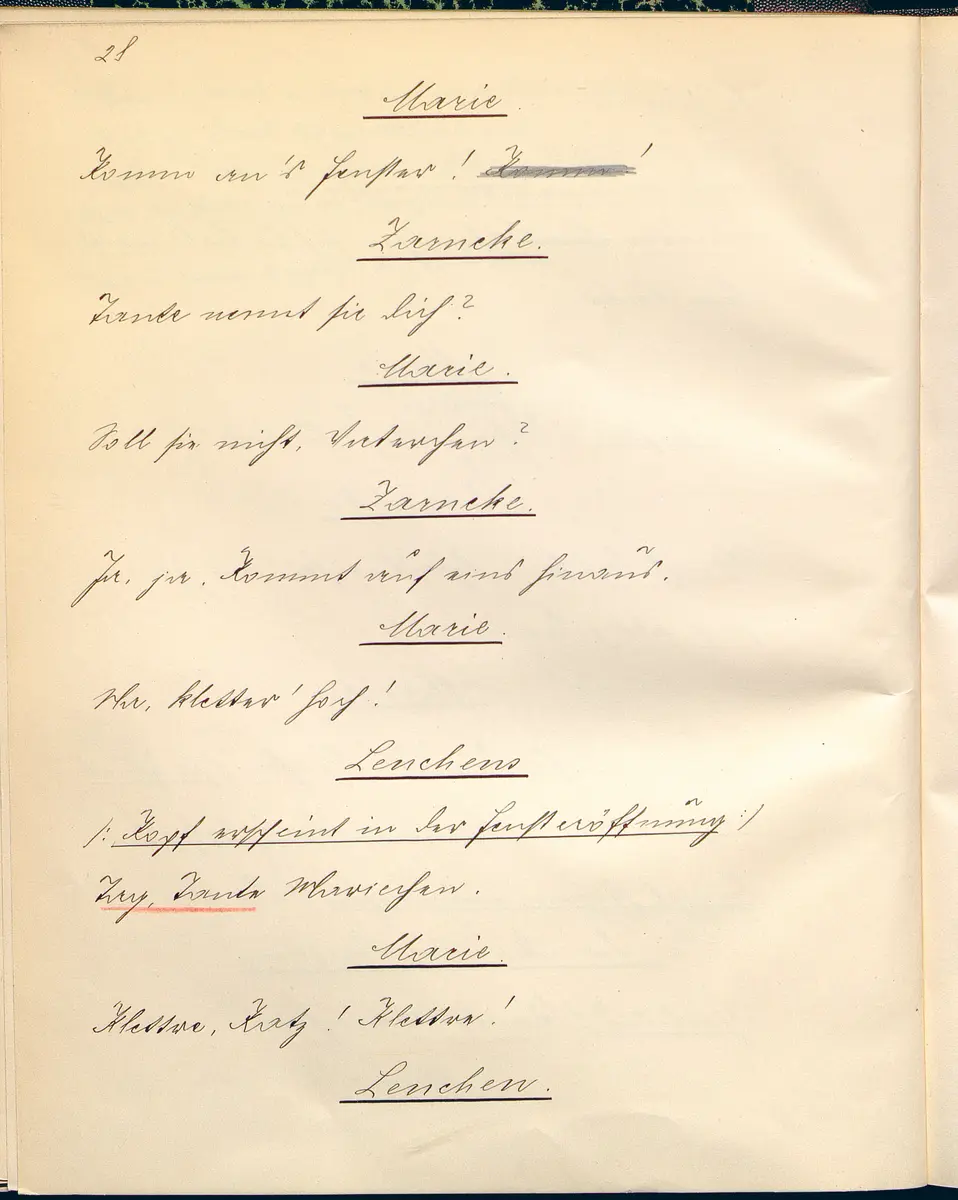 28
Marie.
Komm an's Fenster! Komm!
Zarncke.
Tante nennt sie dich?
Marie.
Soll sie nicht, Vaterchen?
Zarncke.
Ja, ja. Kommt auf eins hinaus.
Marie.
Na, kletter' hoch!
Lenchens
/: Kopf erscheint in der Fensteröffnung :/
Tag, Tante Mariechen.
Marie.
Klettre, Katz! Klettre!
Lenchen.